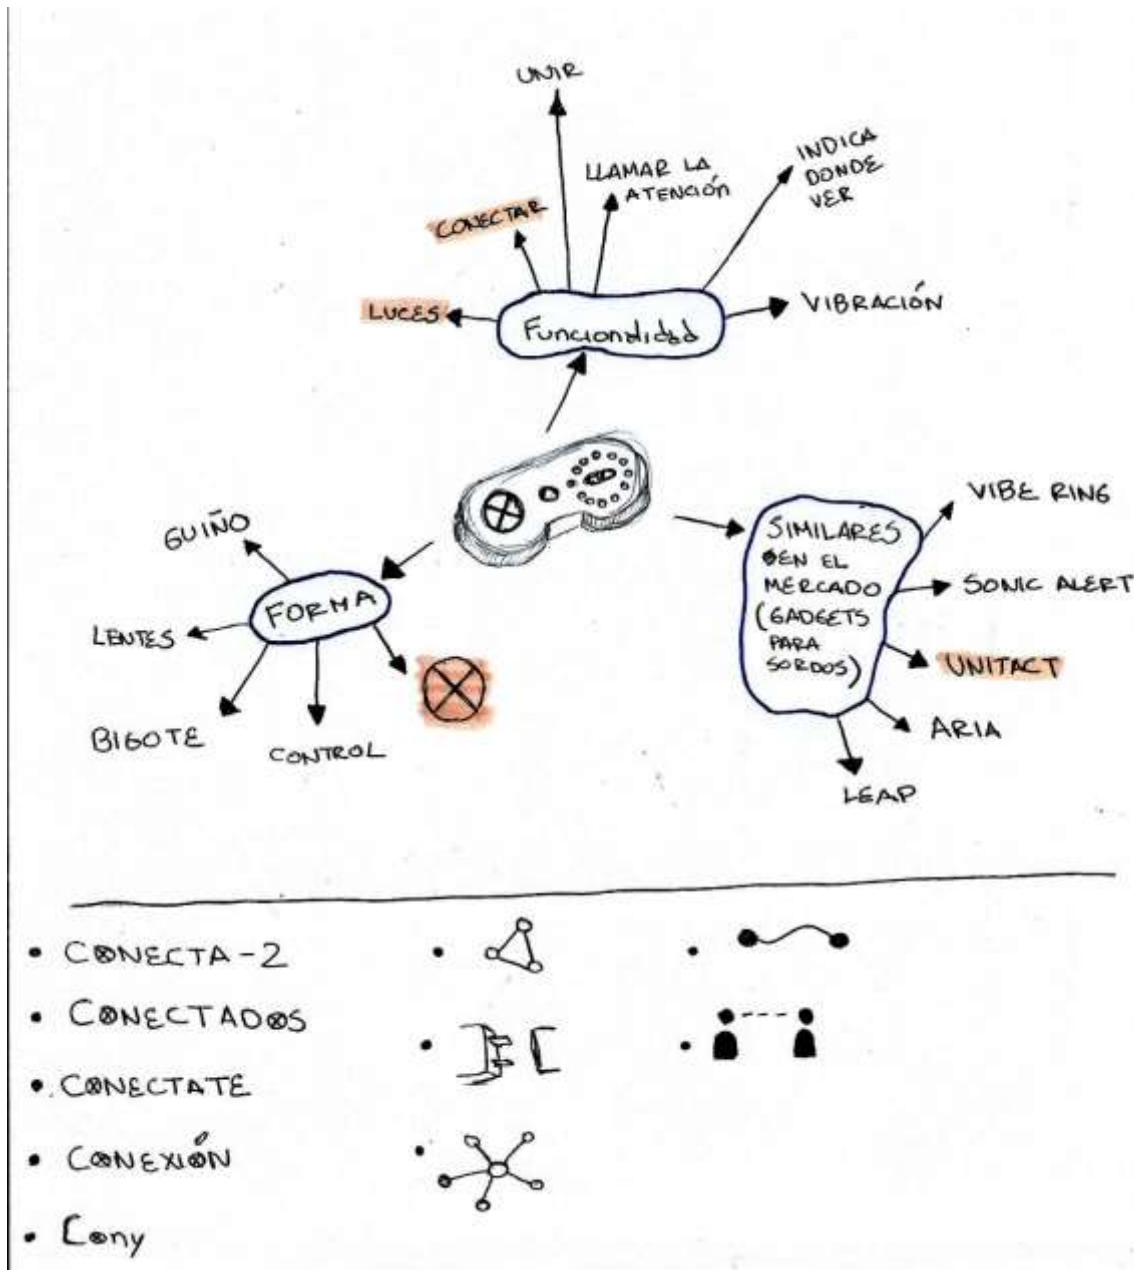 UNIR
LLAMAR LA
ATENCIÓN
INDICA
DONDE
VER
CONECTAR
LUCES
Funcionalidad
VIBRACIÓN
GUIÑO
FORMA
LENTES
BIGOTE
CONTROL
SIMILARES
EN EL
MERCADO
(GADGETS
PARA
SORDOS)
VIBE RING
SONIC ALERT
UNITACT
ARIA
LEAP
• CONECTA-2
• CONECTADOS
• CONECTATE
• CONEXIÓN
• Cony